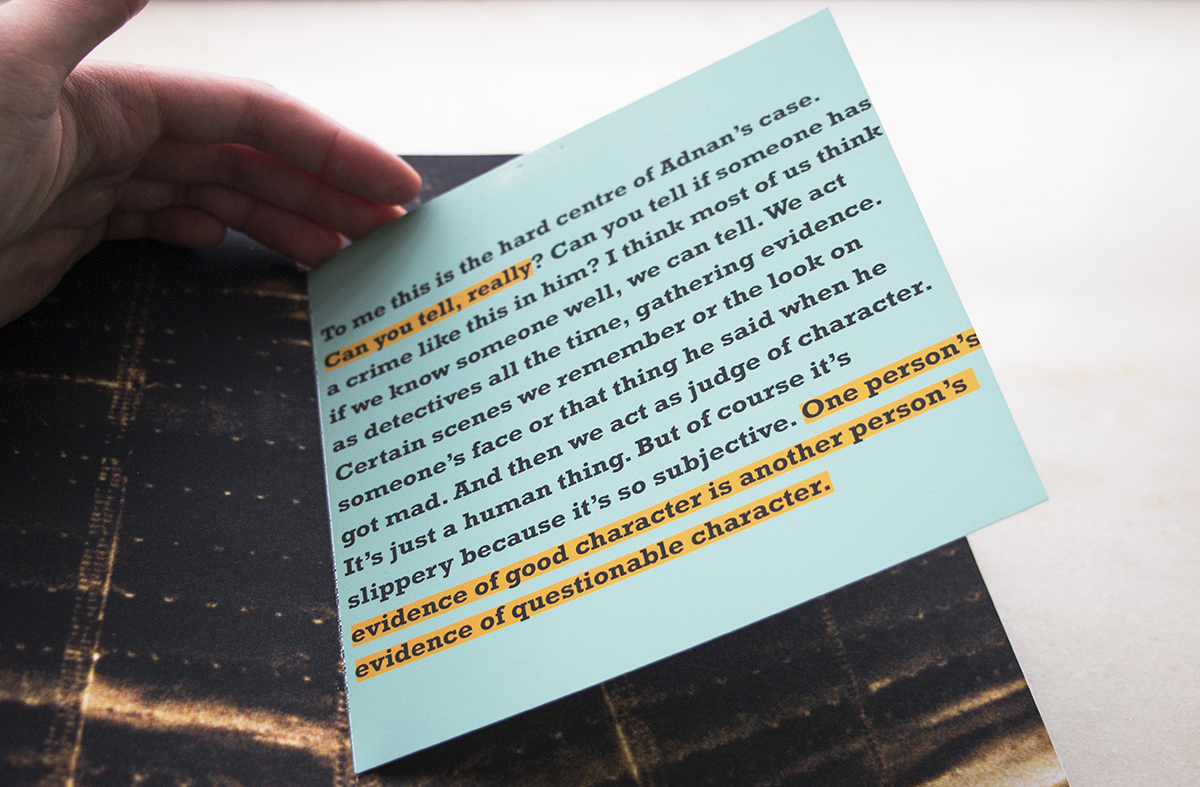 To me this is the hard centre of Adnan's case.
Can you tell, really? Can you tell if someone has
a crime like this in him? I think most of us think
if we know someone well, we can tell. We act
as detectives all the time, gathering evidence.
Certain scenes we remember or the look on
someone's face or that thing he said when he
got mad. And then we act as judge of character.
It's just a human thing. But of course it's
slippery because it's so subjective. One person's
evidence of good character is another person's
evidence of questionable character.